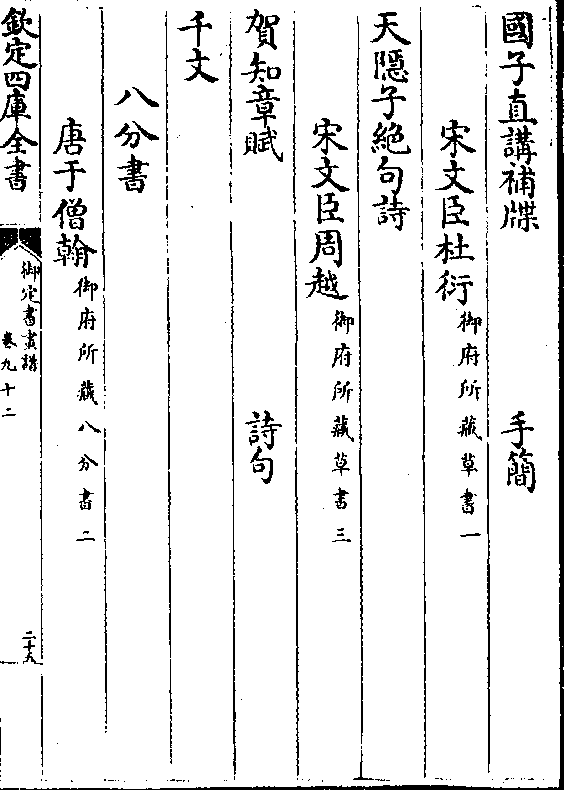 國子直講補牒　手簡
宋文臣杜衍御府所藏草書一
天隱子絶句詩
宋文臣周越御府所藏草書三
賀知章賦　詩句
千文
八分書
唐于僧翰御府所藏八分書二
欽定四庫全書
御定書畫譜
卷九十二
二十九